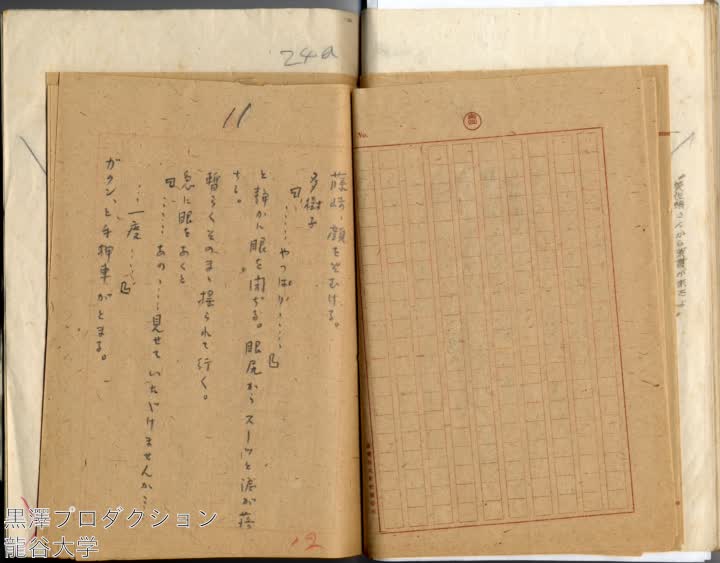 24a
11
藤崎、顔をそむける。
多樹子
「……やっぱり……」
と静かに眼を閉ぢる。眼尻からスーッと涙が落
ちる。
暫らくそのまゝ揺られて行く。
急に眼をあくと
「……あの……見せていたゞけませんか…
…一度……」
ガタン、と手押車がとまる。
12
No.
さんから
黒澤プロダクション
龍谷大学